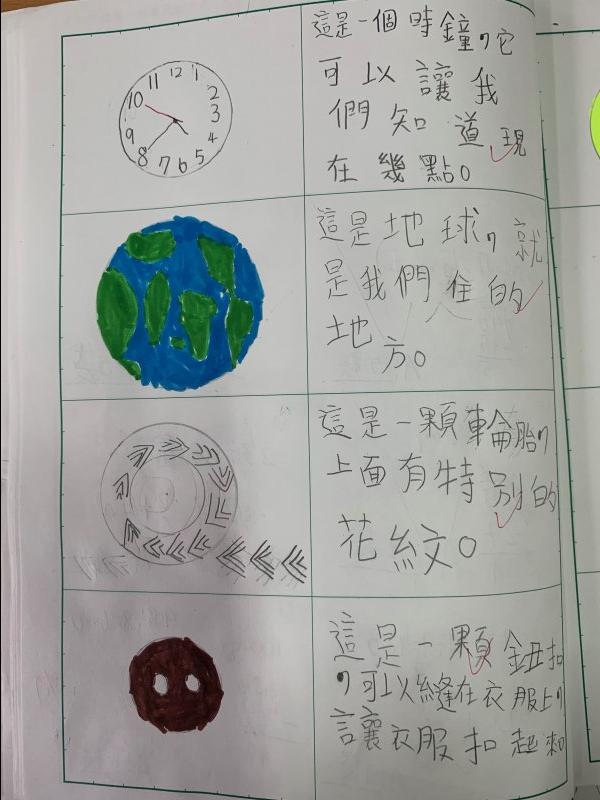 12
1
2
3
4
5
6
7
8
9
10
11
這是一個時鐘，它
可以讓我
們知道現
在幾點。
這是地球，就
是我們住的
地方。
這是一顆輪胎，
上面有特別的
花紋。
這是一顆鈕扣
，可以縫在衣服上，
讓衣服扣起來